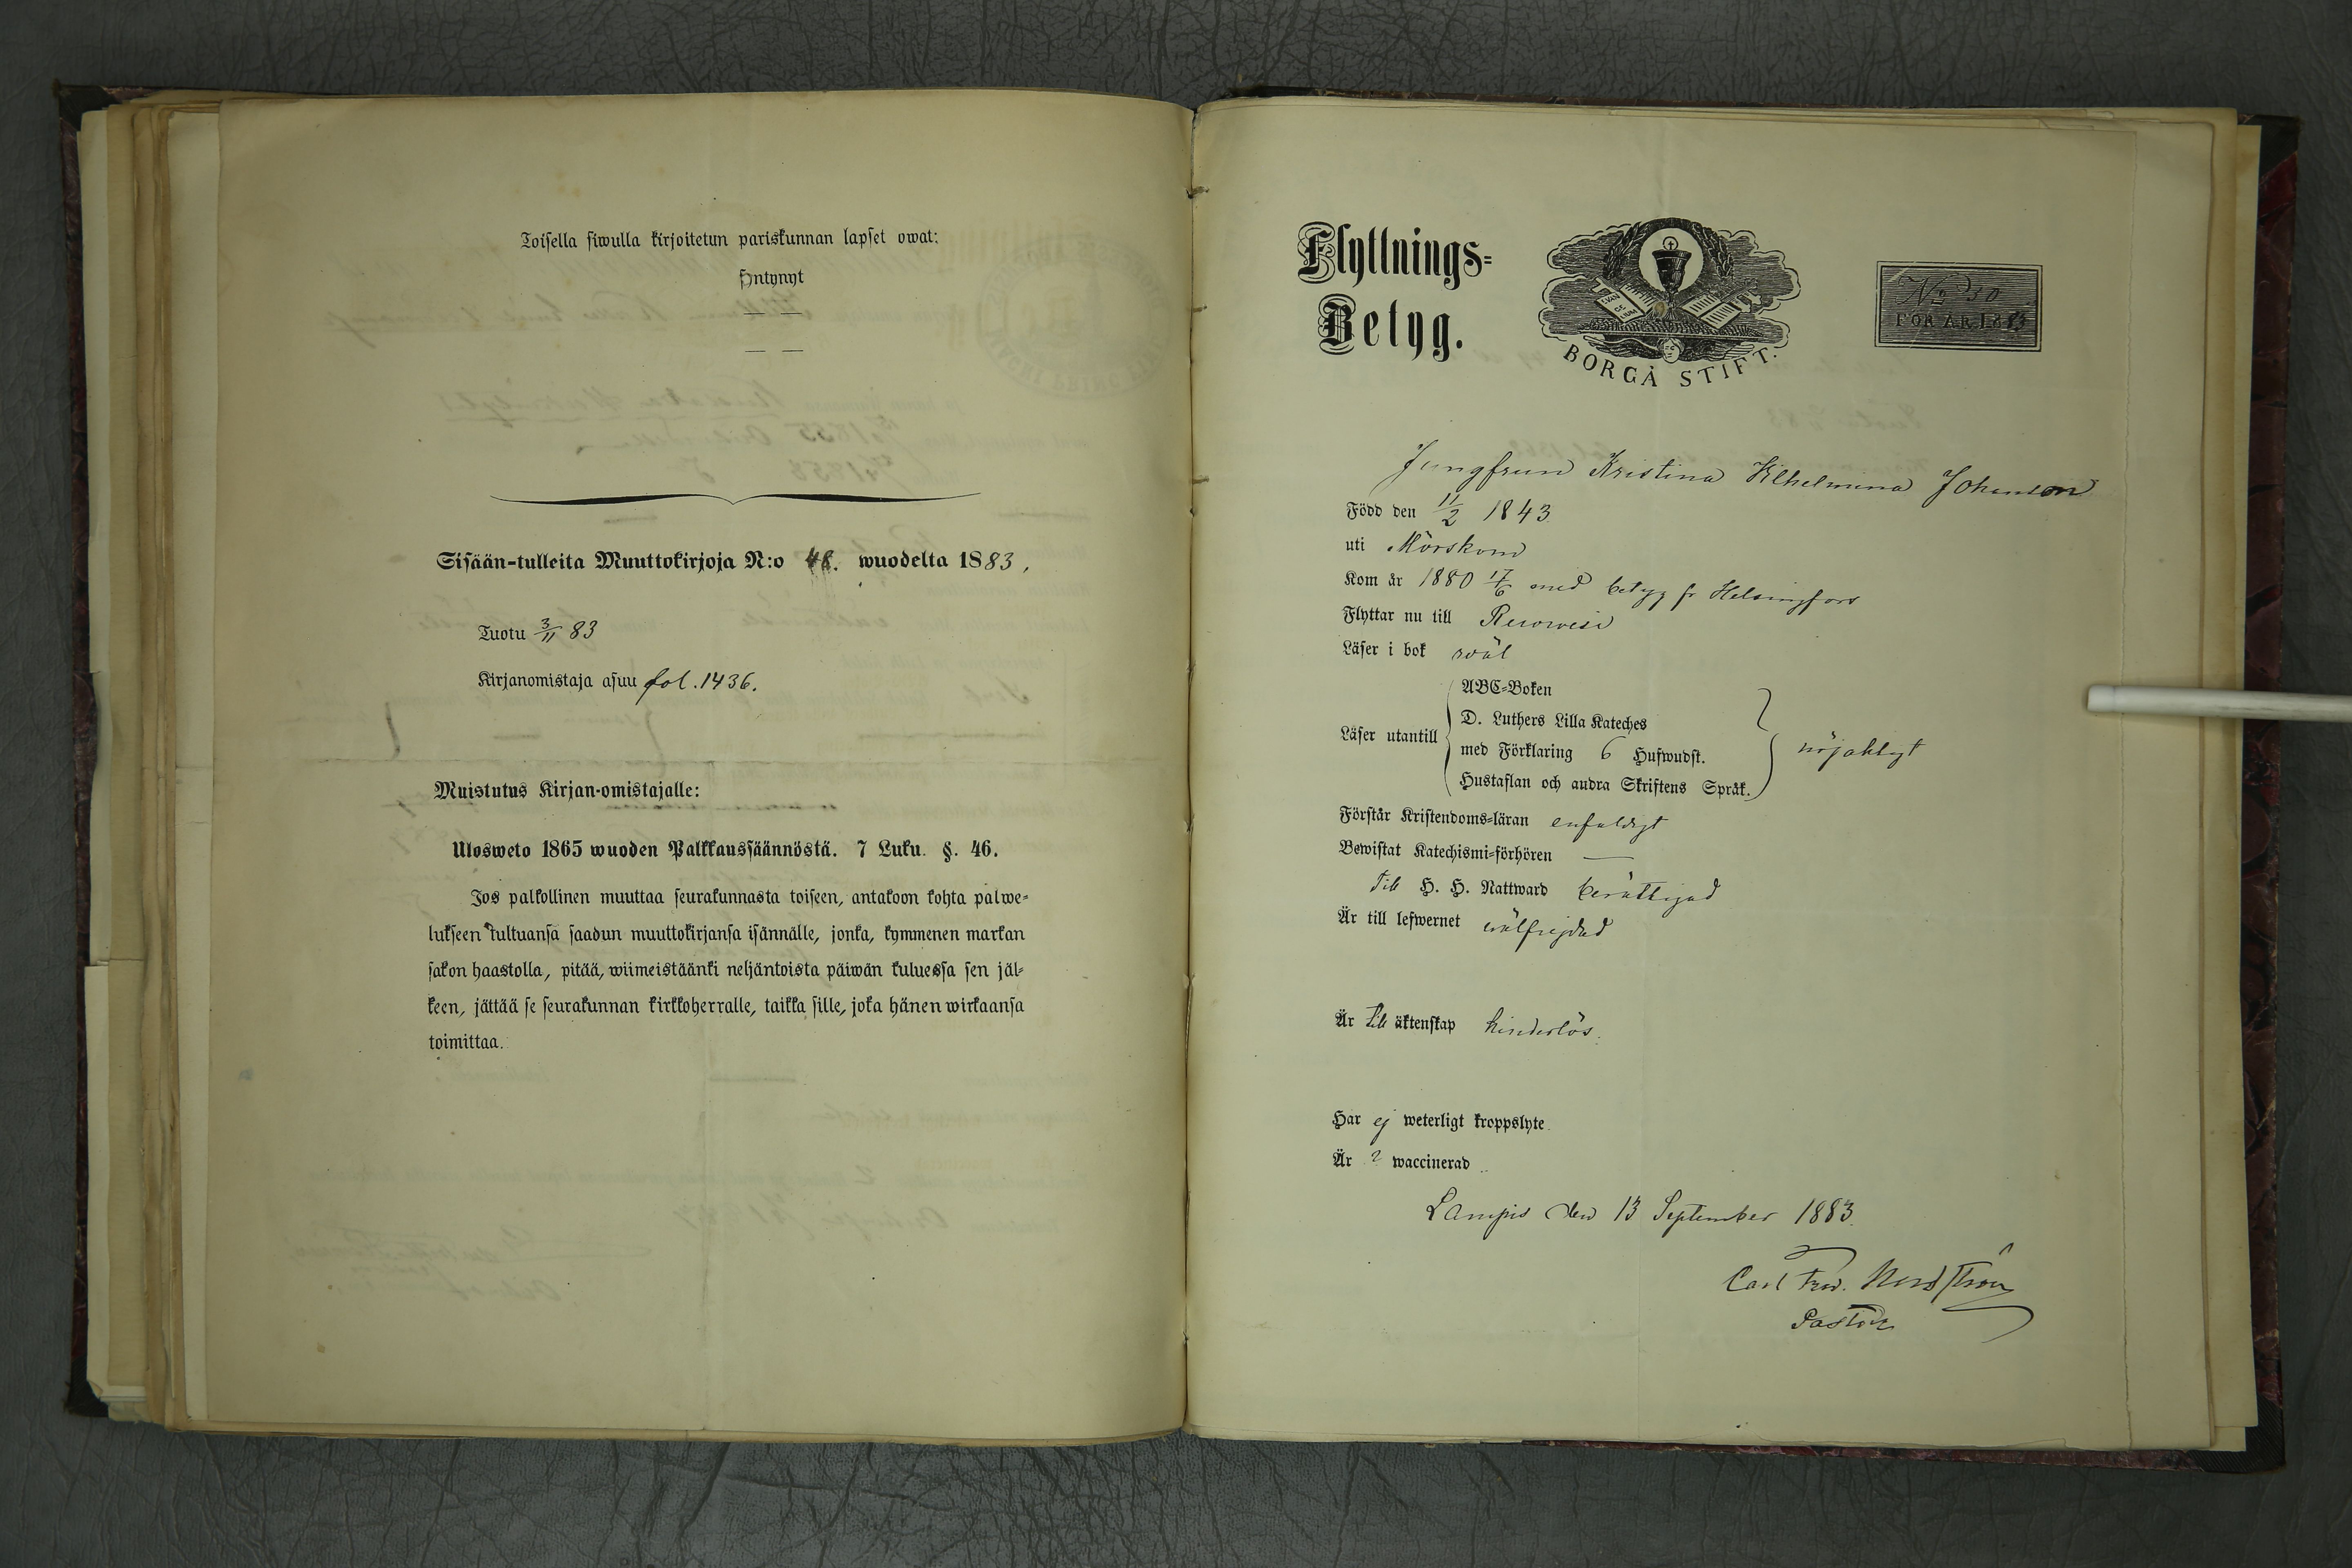 Toisella siwulla kirjoitetun pariskunnan lapset owat:
syntynyt
— —
— —
Sisään-tulleita Muuttokirjoja N:o 48. wuodelta 1883,
Tuotu 3/11 83
Kirjanomistaja asuu fol. 1436.
Muistutus Kirjan-omistajalle:
Ulosweto 1865 wuoden Palkkaussäännöstä. 7 Luku. §. 46.
Jos palkollinen muuttaa seurakunnasta toiseen, antakoon kohta palwe-
lukseen tultuansa saadun muuttokirjansa isännälle, jonka, kymmenen markan
sakon haastolla, pitää, wiimeistäänki neljäntoista päiwän kuluessa sen jäl-
keen, jättää se seurakunnan kirkkoherralle, taikka sille, joka hänen wirkaansa
toimittaa.
Flyttnings-
Betyg.
EVAN
GE
LIUM
BORGÅ STIFT.
No 30
FÖR ÅR 1883
Jungfrun Kristina Vilhelmina Johansson
Född den 11/2 1843
uti Mörskom
Kom år 1880 17/6 med betyg fr Helsingfors
Flyttar nu till
Läser i bok wäl
Läser utantill
ABC-Boken
D. Luthers Lilla Kateches
med Förklaring 6 Hufwudst.
Hustaflan och andra Skriftens Språk.
nöjaktigt
Förstår Kristendoms-läran enfaldigt
Bewistat Katechismi-förhören —
Till H. H. Nattward berättigad
Är till lefwernet wälfrejdad
Är till äktenskap hinderlös.
Har ej weterligt kroppslyte
Är ? waccinerad
Lampis den 13 September 1883.
Carl Fred. Nordström
Pastor